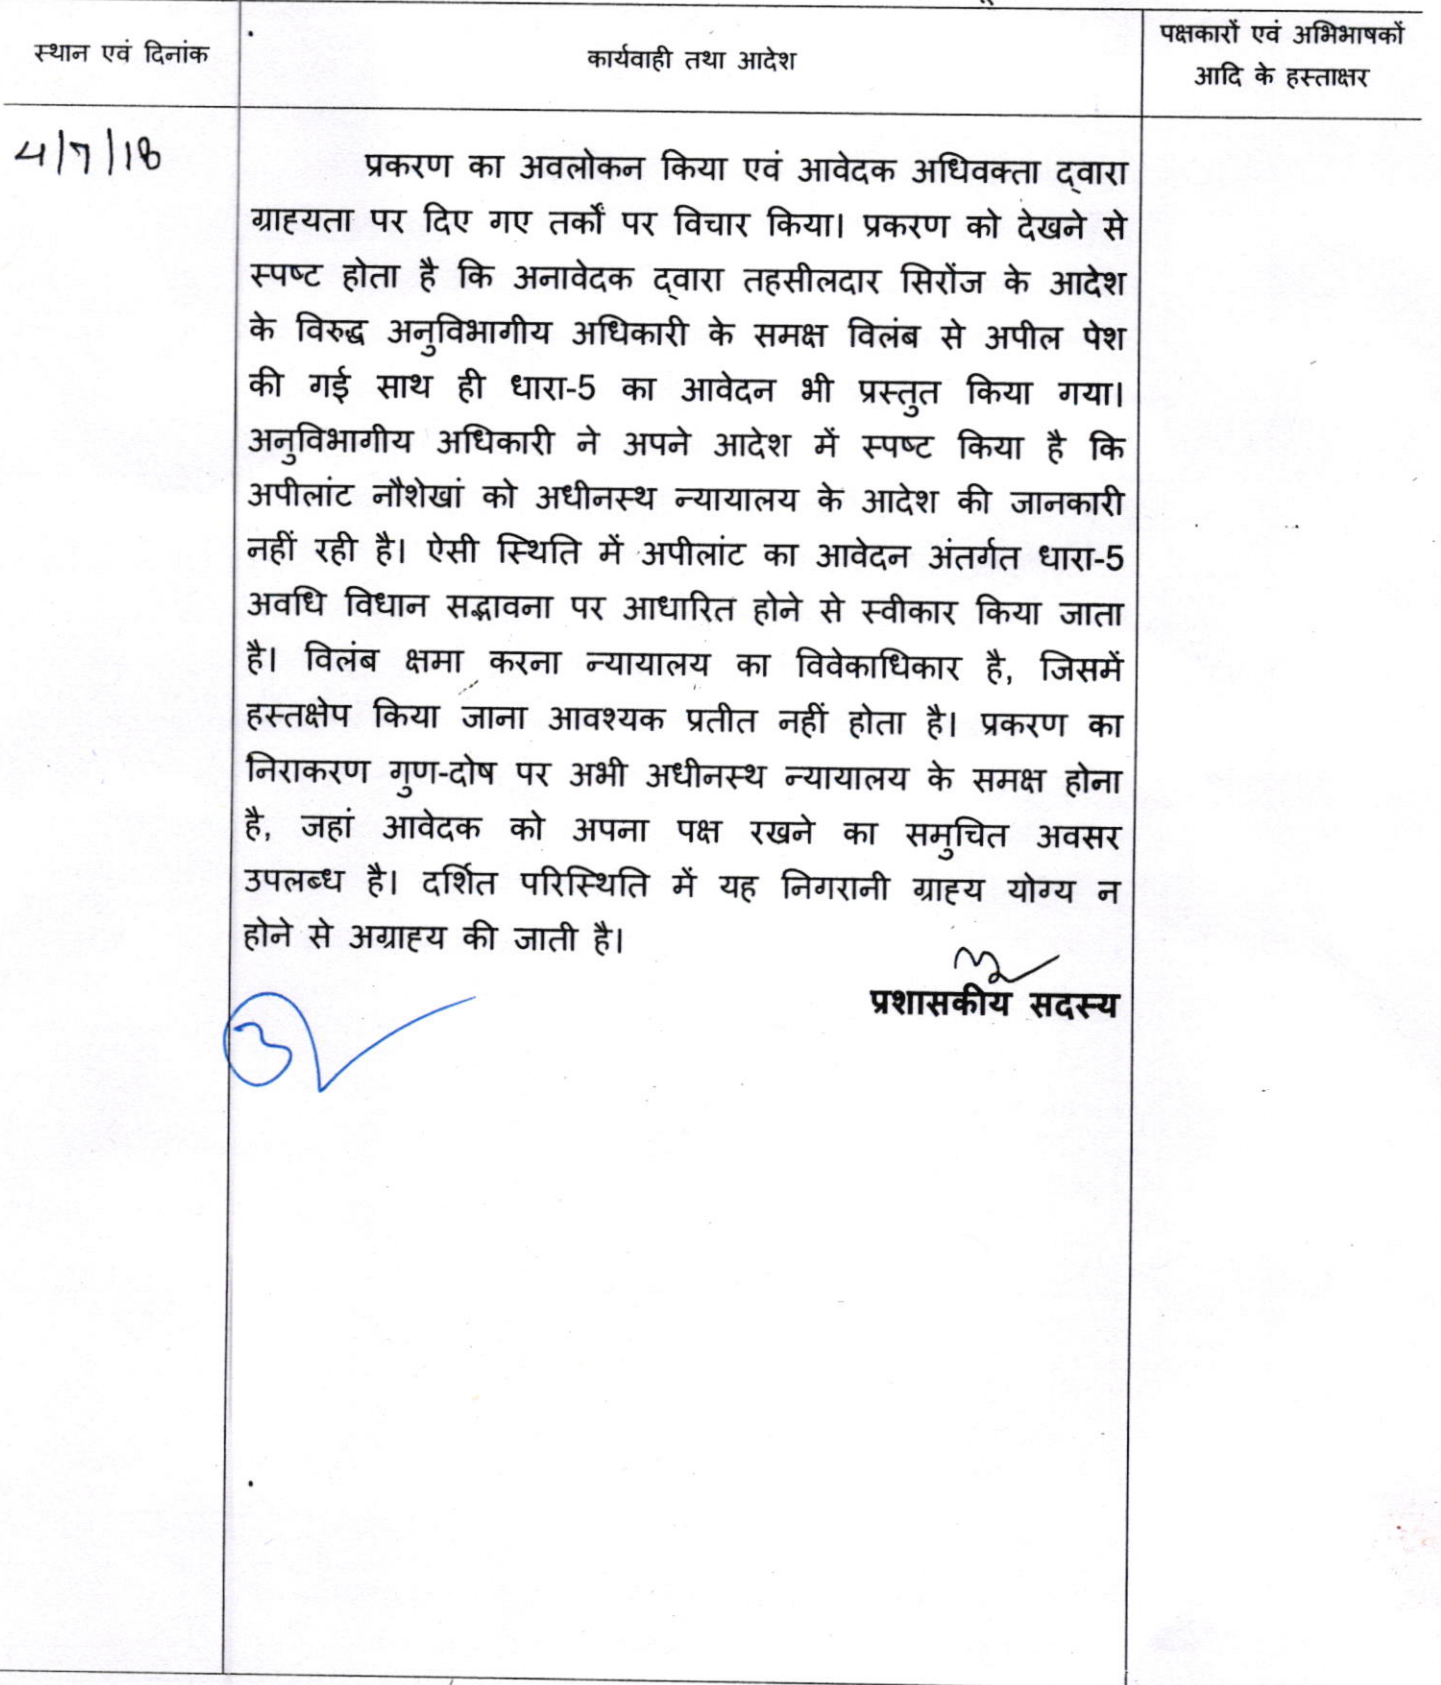 स्थान एवं दिनांक
कार्यवाही तथा आदेश
पक्षकारों एवं अभिभाषकों
आदि के हस्ताक्षर
4/7/18
प्रकरण का अवलोकन किया एवं आवेदक अधिवक्ता द्वारा
ग्राह्यता पर दिए गए तर्कों पर विचार किया। प्रकरण को देखने से
स्पष्ट होता है कि अनावेदक द्वारा तहसीलदार सिरोंज के आदेश
के विरुद्ध अनुविभागीय अधिकारी के समक्ष विलंब से अपील पेश
की गई साथ ही धारा-5 का आवेदन भी प्रस्तुत किया गया।
अनुविभागीय अधिकारी ने अपने आदेश में स्पष्ट किया है कि
अपीलांट नौशेखां को अधीनस्थ न्यायालय के आदेश की जानकारी
नहीं रही है। ऐसी स्थिति में अपीलांट का आवेदन अंतर्गत धारा-5
अवधि विधान सद्भावना पर आधारित होने से स्वीकार किया जाता
है। विलंब क्षमा करना न्यायालय का विवेकाधिकार है, जिसमें
हस्तक्षेप किया जाना आवश्यक प्रतीत नहीं होता है। प्रकरण का
निराकरण गुण-दोष पर अभी अधीनस्थ न्यायालय के समक्ष होना
है, जहां आवेदक को अपना पक्ष रखने का समुचित अवसर
उपलब्ध है। दर्शित परिस्थिति में यह निगरानी ग्राह्य योग्य न
होने से अग्राह्य की जाती है।
प्रशासकीय सदस्य